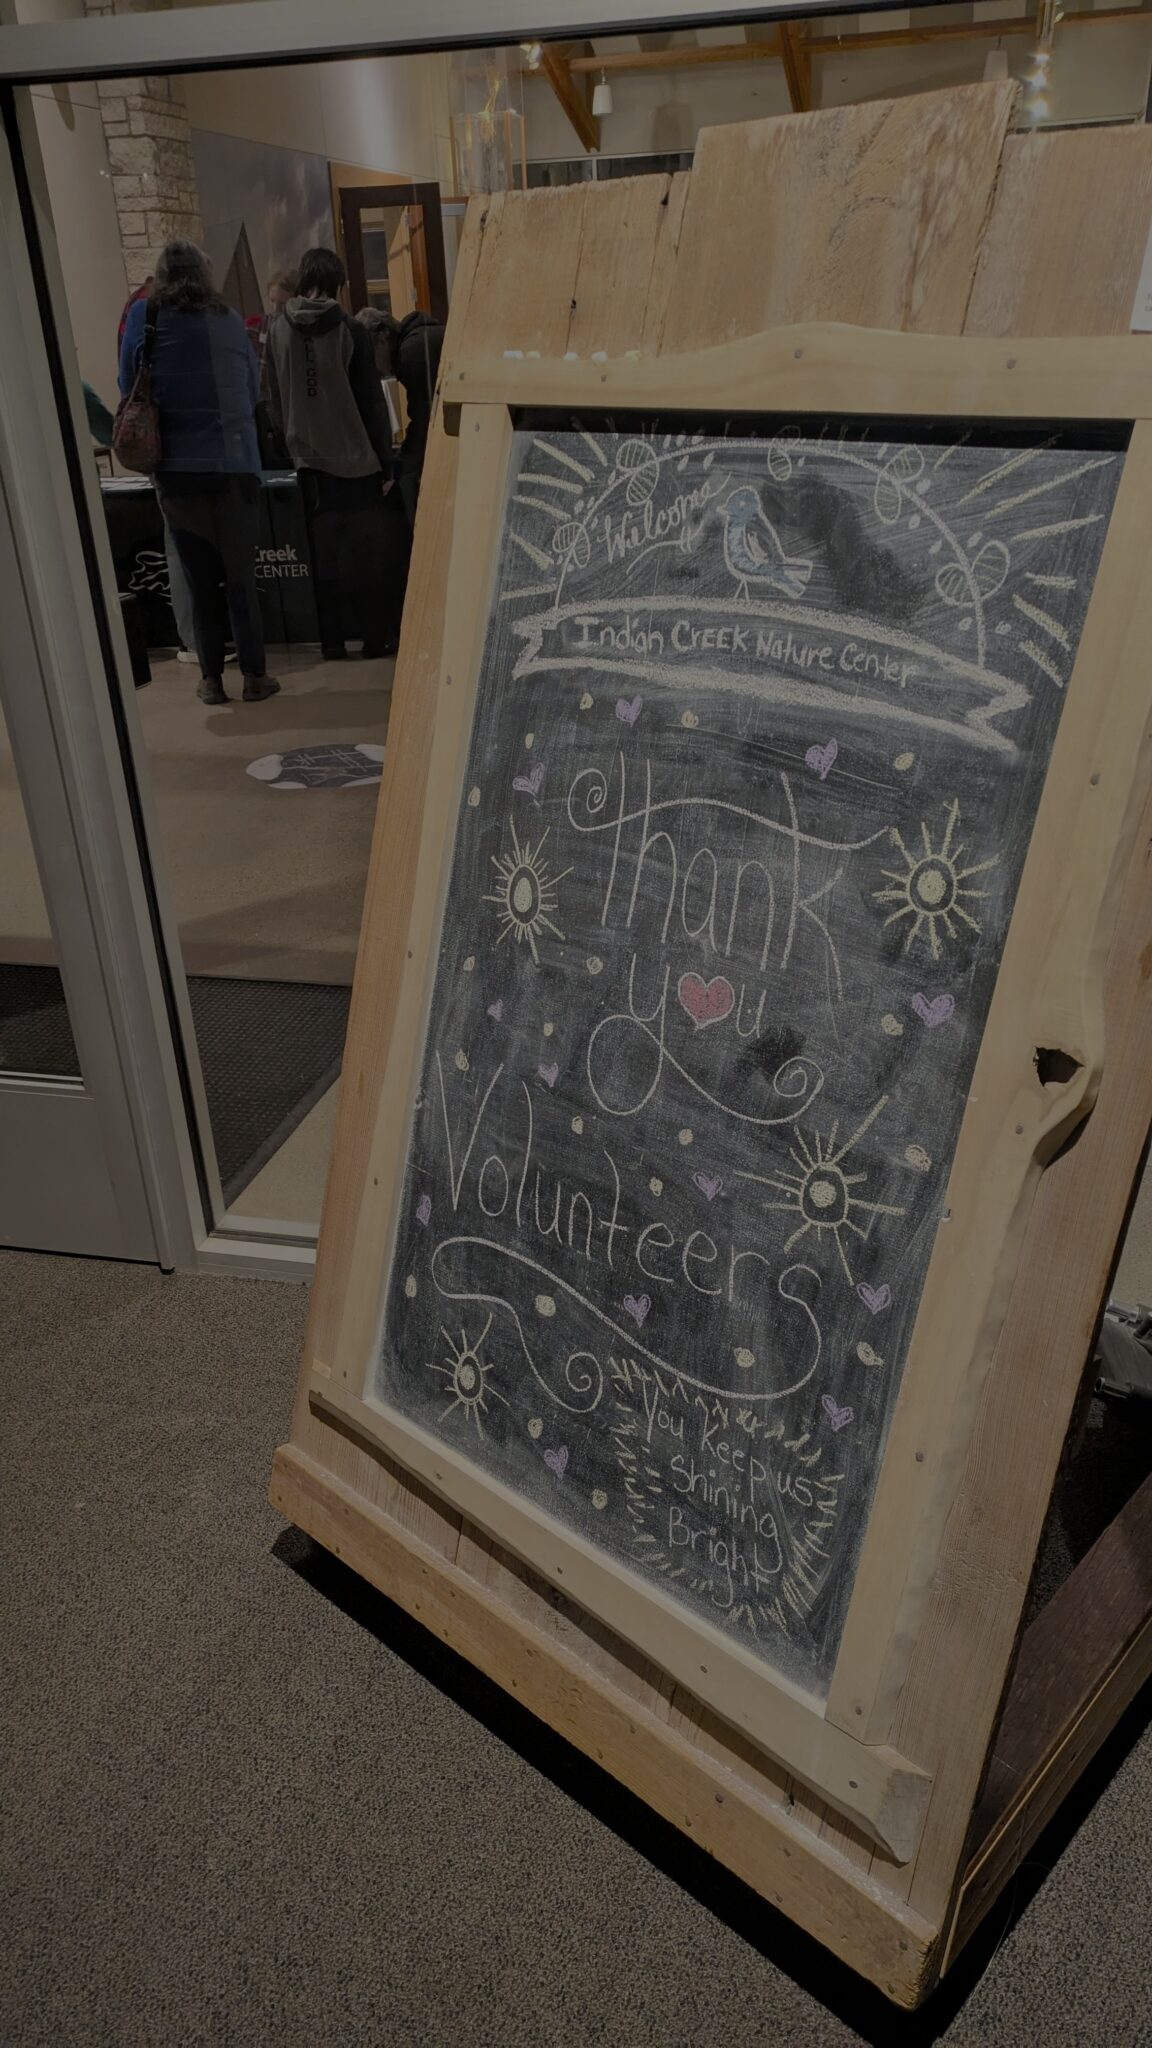 Welcome
Indian Creek Nature Center
Thank
you
Volunteers
You Keep us
Shining
Bright
Creek
CENTER